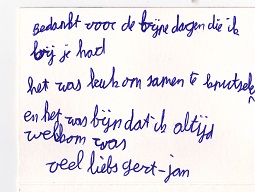 Bedankt voor de bijne dagen die ik
bij je had
het was leuk om samen te knutselen
en het was bijn dat ik altijd
welkom was
veel liebs gert-jan